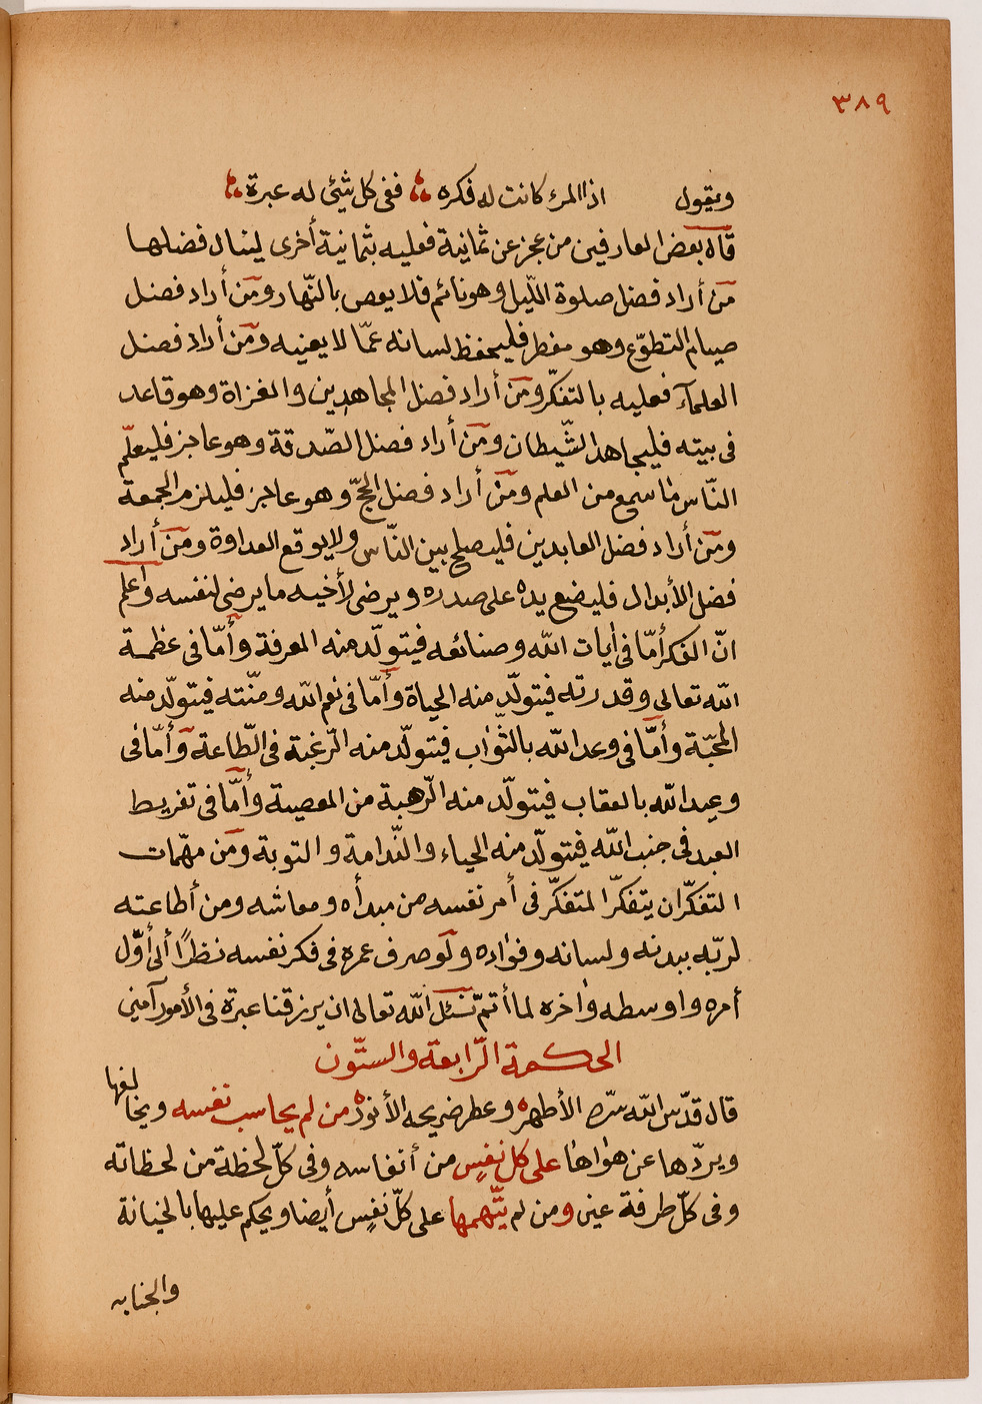 ٣٨٩
ويقول اذا المرء كانت له فكره ؛ ففى كل شيئ له عبرة ؛
قاله بعض العارفين من عجز عن ثمانية فعليه بثمانية أخرى لينال فضلها
من أراد فضل صلوة اللّيل وهو نائم فلا يعص بالنّهار ومن أراد فضل
صيام التطوّع وهو مفطر فليحفظ لسانه عمّا لا يعنيه ومن أراد فضل
العلمآء فعليه بالتفكّر ومن أراد فضل المجاهدين والغزاة وهو قاعد
فى بيته فليجاهد الشّيطان ومن أراد فضل الصّدقة وهو عاجز فليعلّم
النّاس ما سمع من العلم ومن أراد فضل الحجّ وهو عاجز فليلزم الجمعة
ومن أراد فضل العابدين فليصلح بين النّاس ولا يوقع العداوة ومن أراد
فضل الأبدال فليضع يده على صدره ويرضى لأخيه ما يرضى لنفسه واعلم
انّ الفكر أمّا فى أيات الله وصنائعه فيتولّد منه المعرفة وأمّا فى عظمة
الله تعالى وقدرته فيتولّد منه الحياة وأمّا فى نعم الله ومنّته فيتولّد منه
المحبّة وأمّا فى وعد الله بالثّواب فيتولّد منه الرّغبة فى الطّاعة وأمّا فى
وعيد الله بالعقاب فيتولّد منه الرّهبة من المعصية وأمّا فى تفريط
العبد فى جنب الله فيتولّد منه الحياء والنّدامة والتوبة ومن مهّمات
التفكّر ان يتفكّر المتفكّر فى أمر نفسه من مبدأه ومعاشه ومن أطاعته
لربّه ببدنه ولسانه وفواده ولو صرف عمره فى فكر نفسه نظرًا ألى أوّل
أمره واوسطه واخره لما أتمّ نسئل الله تعالى ان يرزقنا عبرة فى الأمور آمين
الحكمة الرّابعة والستّون
قال قدّس الله سرّه الأطهره وعطر ضريحه الأنوره من لم يحاسب نفسه ويخالفها
ويردّها عن هواها على كل نفسٍ من أنفاسه وفى كلّ لحظة من لحظاته
وفى كلّ طرفة عين ومن لم يتّهمها على كلّ نفسٍ أيضا ويحكم عليها بالخيانة
والجنايه